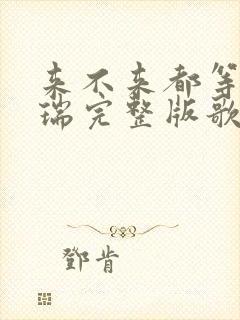 来不来都等
瑞完整版歌
鄧肯